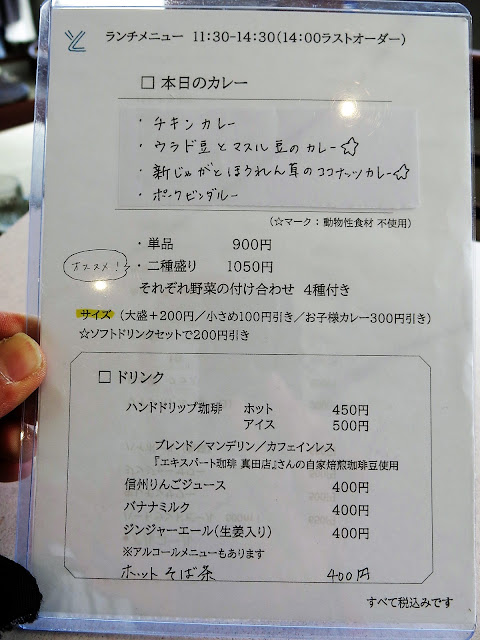 ランチメニュー 11:30-14:30(14:00ラストオーダー)
□ 本日のカレー
・チキンカレー
・ウラド豆とマスル豆のカレー☆
・新じゃがとほうれん草のココナッツカレー☆
・ポークビンダルー
(☆マーク：動物性食材 不使用)
・単品 900円
オススメ! ・二種盛り 1050円
それぞれ野菜の付け合わせ 4種付き
サイズ (大盛+200円／小さめ100円引き／お子様カレー300円引き)
☆ソフトドリンクセットで200円引き
□ ドリンク
ハンドドリップ珈琲 ホット 450円
アイス 500円
ブレンド／マンデリン／カフェインレス
『エキスパート珈琲 真田店』さんの自家焙煎珈琲豆使用
信州りんごジュース 400円
バナナミルク 400円
ジンジャーエール(生姜入り) 400円
※アルコールメニューもあります
ホットそば茶 400円
すべて税込みです